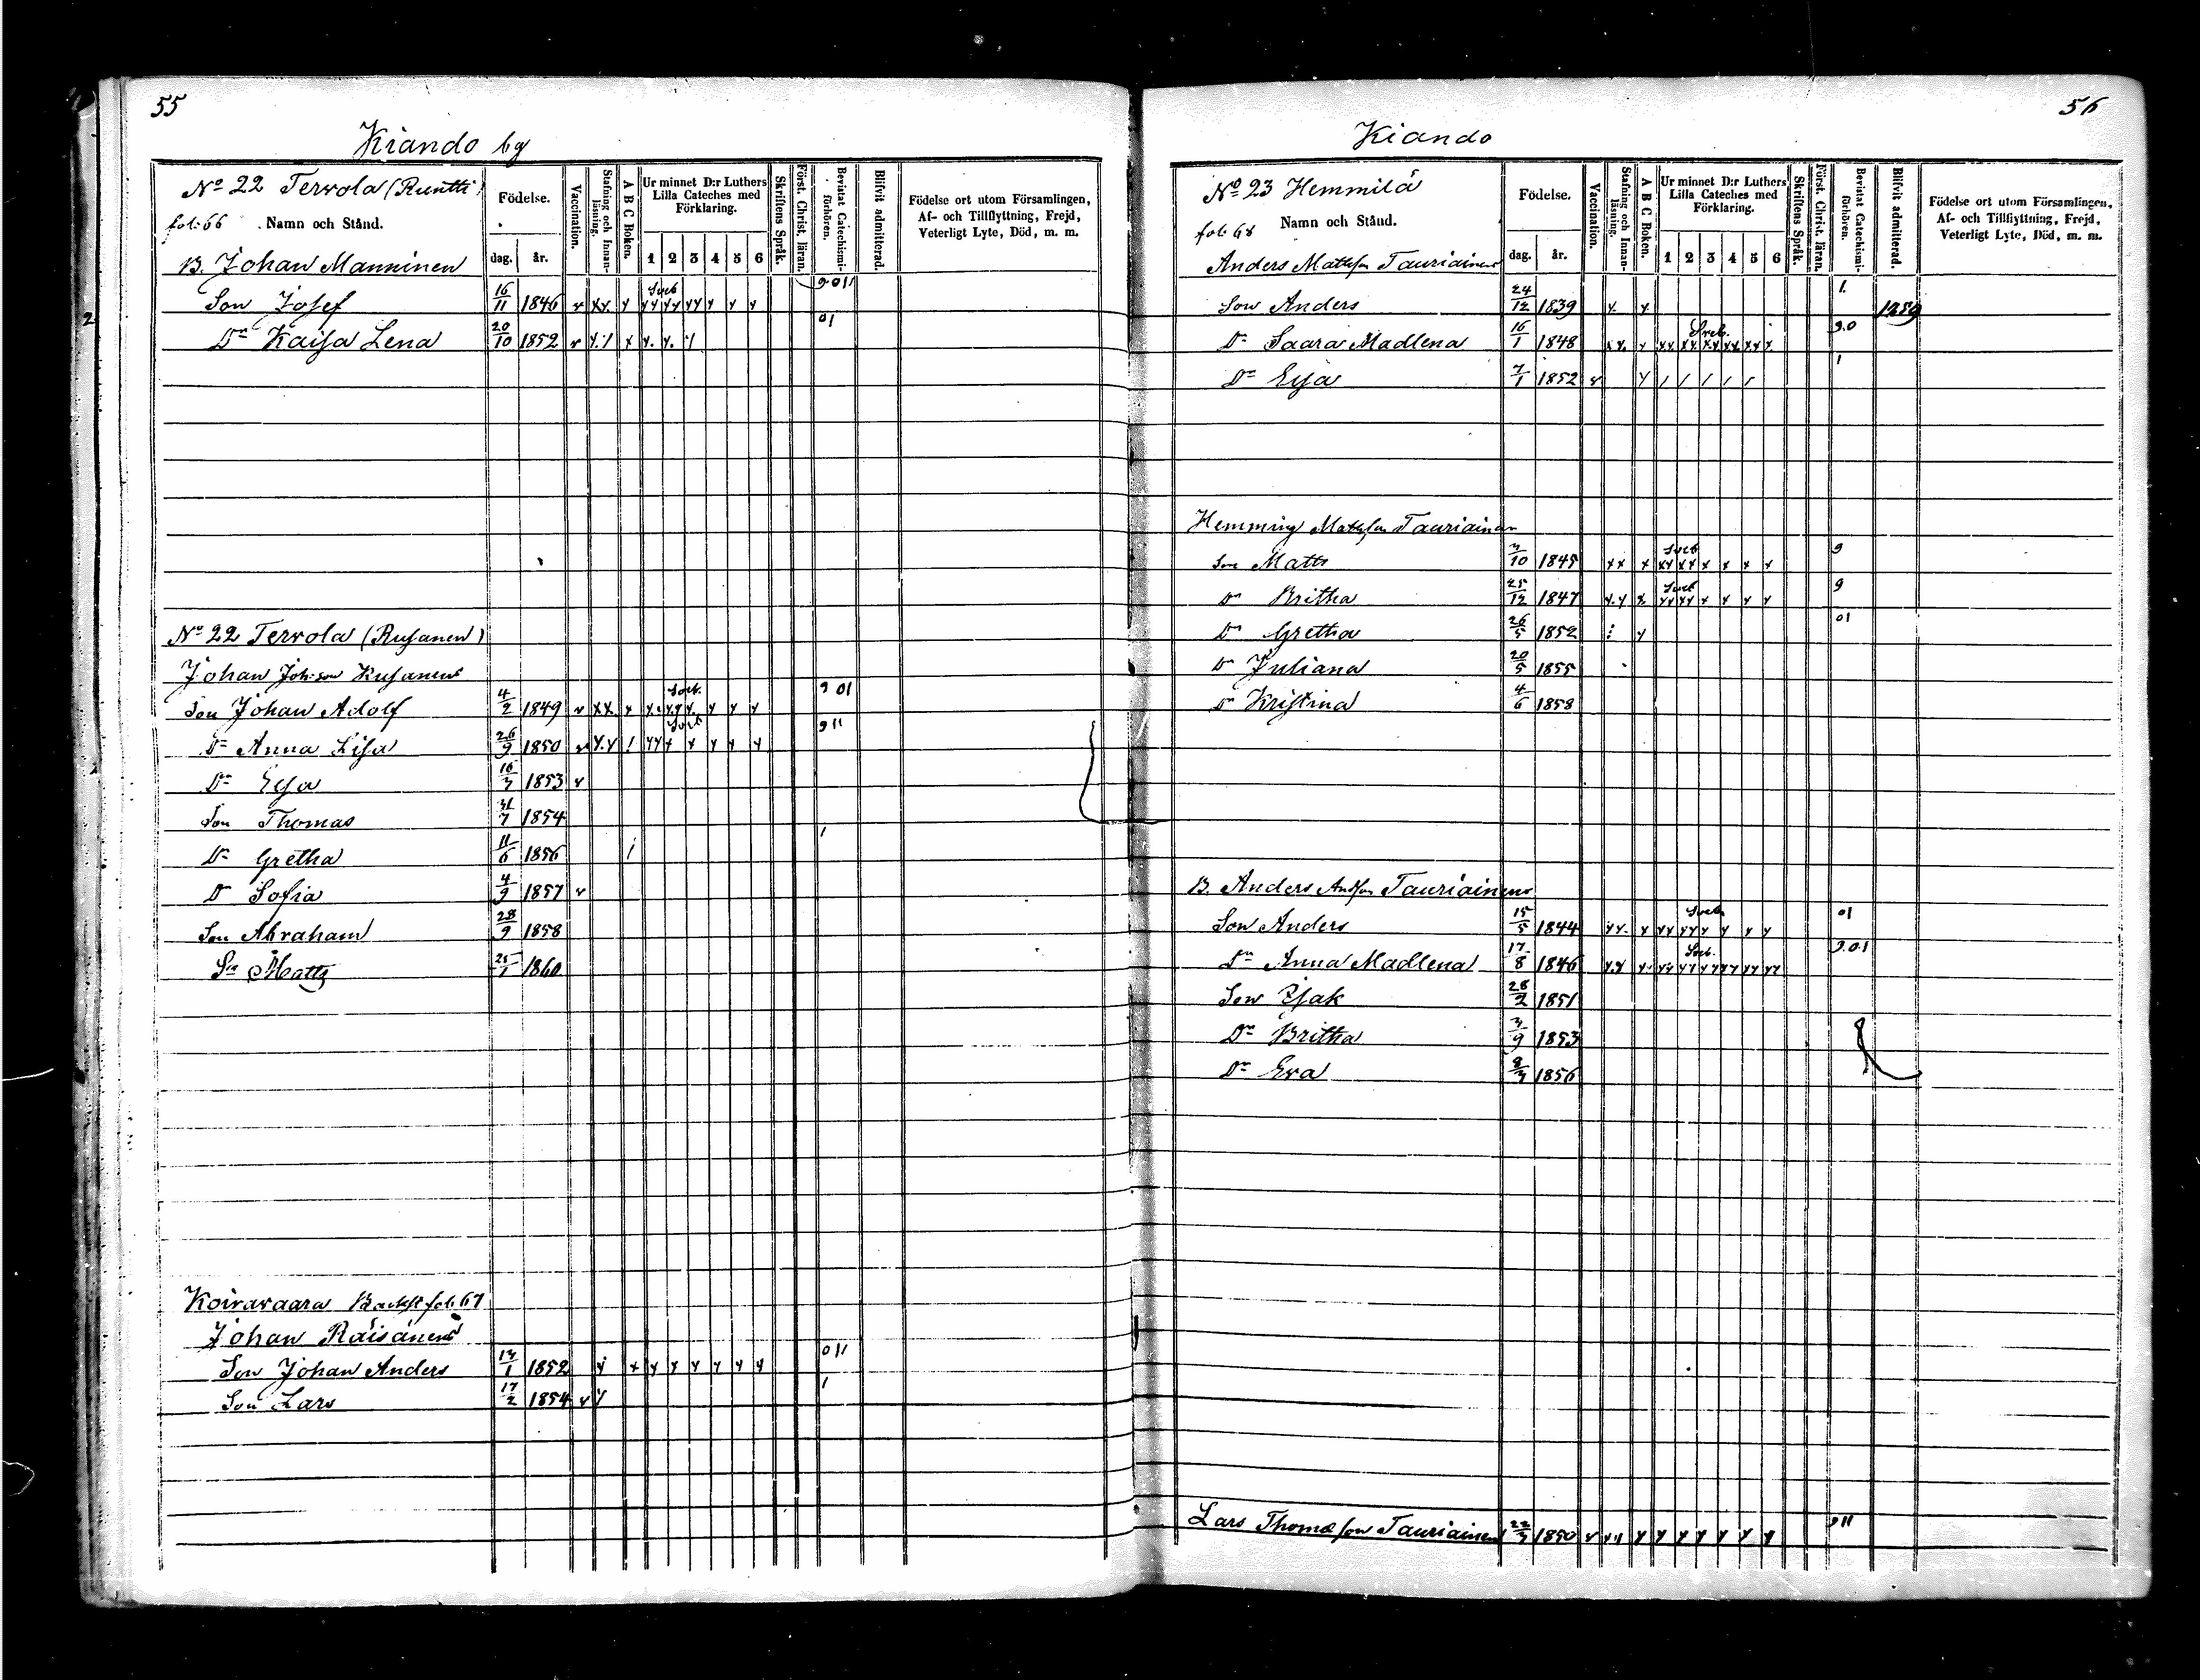 55
Kiando by
No 22 Tervola (Runtti)
fol. 66 Namn och Stånd.
Födelse.
dag. år.
Vaccination.
Stafning och Innanläsning.
A B C Boken.
Ur minnet D:r Luthers Lilla Cateches med Förklaring.
1 2 3 4 5 6
Skriftens Språk.
Först. Christ. läran.
Bevistat Catechismiförhören.
Blifvit admitterad.
Födelse ort utom Församlingen,
Af- och Tillflyttning, Frejd,
Veterligt Lyte, Död, m. m.
B. Johan Manninen
Son Josef 16/11 1846
Dr Kaisa Lena 20/10 1852
No 22 Tervola (Rusanen)
Johan Joh:son Rusanens
Son Johan Adolf 4/2 1849
Dr Anna Lisa 26/9 1850
Dr Elsa 16/7 1853
Son Thomas 31/7 1854
Dr Gretha 11/6 1856
Dr Sofia 4/9 1857
Son Abraham 28/9 1858
Sn Matts 25/1 1860
Koivavaara Backst fol. 67
Johan Räisänens
Son Johan Anders 13/1 1852
Son Lars 17/2 1854
56
Kiando
No 23 Hemmilä
fol. 68 Namn och Stånd.
Födelse.
dag. år.
Vaccination.
Stafning och Innanläsning.
A B C Boken.
Ur minnet D:r Luthers Lilla Cateches med Förklaring.
1 2 3 4 5 6
Skriftens Språk.
Först. Christ. läran.
Bevistat Catechismiförhören.
Blifvit admitterad.
Födelse ort utom Församlingen,
Af- och Tillflyttning, Frejd,
Veterligt Lyte, Död, m. m.
Anders Mattsson Tauriainens
Son Anders 24/12 1839 1859
Dr Saara Madlena 16/1 1848
Dr Elsa 7/1 1852
Hemming Mattsson Tauriainen
Son Matts 7/10 1845
Dr Britha 25/12 1847
Dr Gretha 26/5 1852
Dr Juliana 20/5 1855
Dr Kristina 4/6 1858
B. Anders Andson Tauriainens
Son Anders 15/5 1844
Dr Anna Madlena 17/8 1846
Son Isak 28/2 1851
Dr Britha 3/9 1853
Dr Eva 1856
Lars Thomasson Tauriainen 22/7 1850